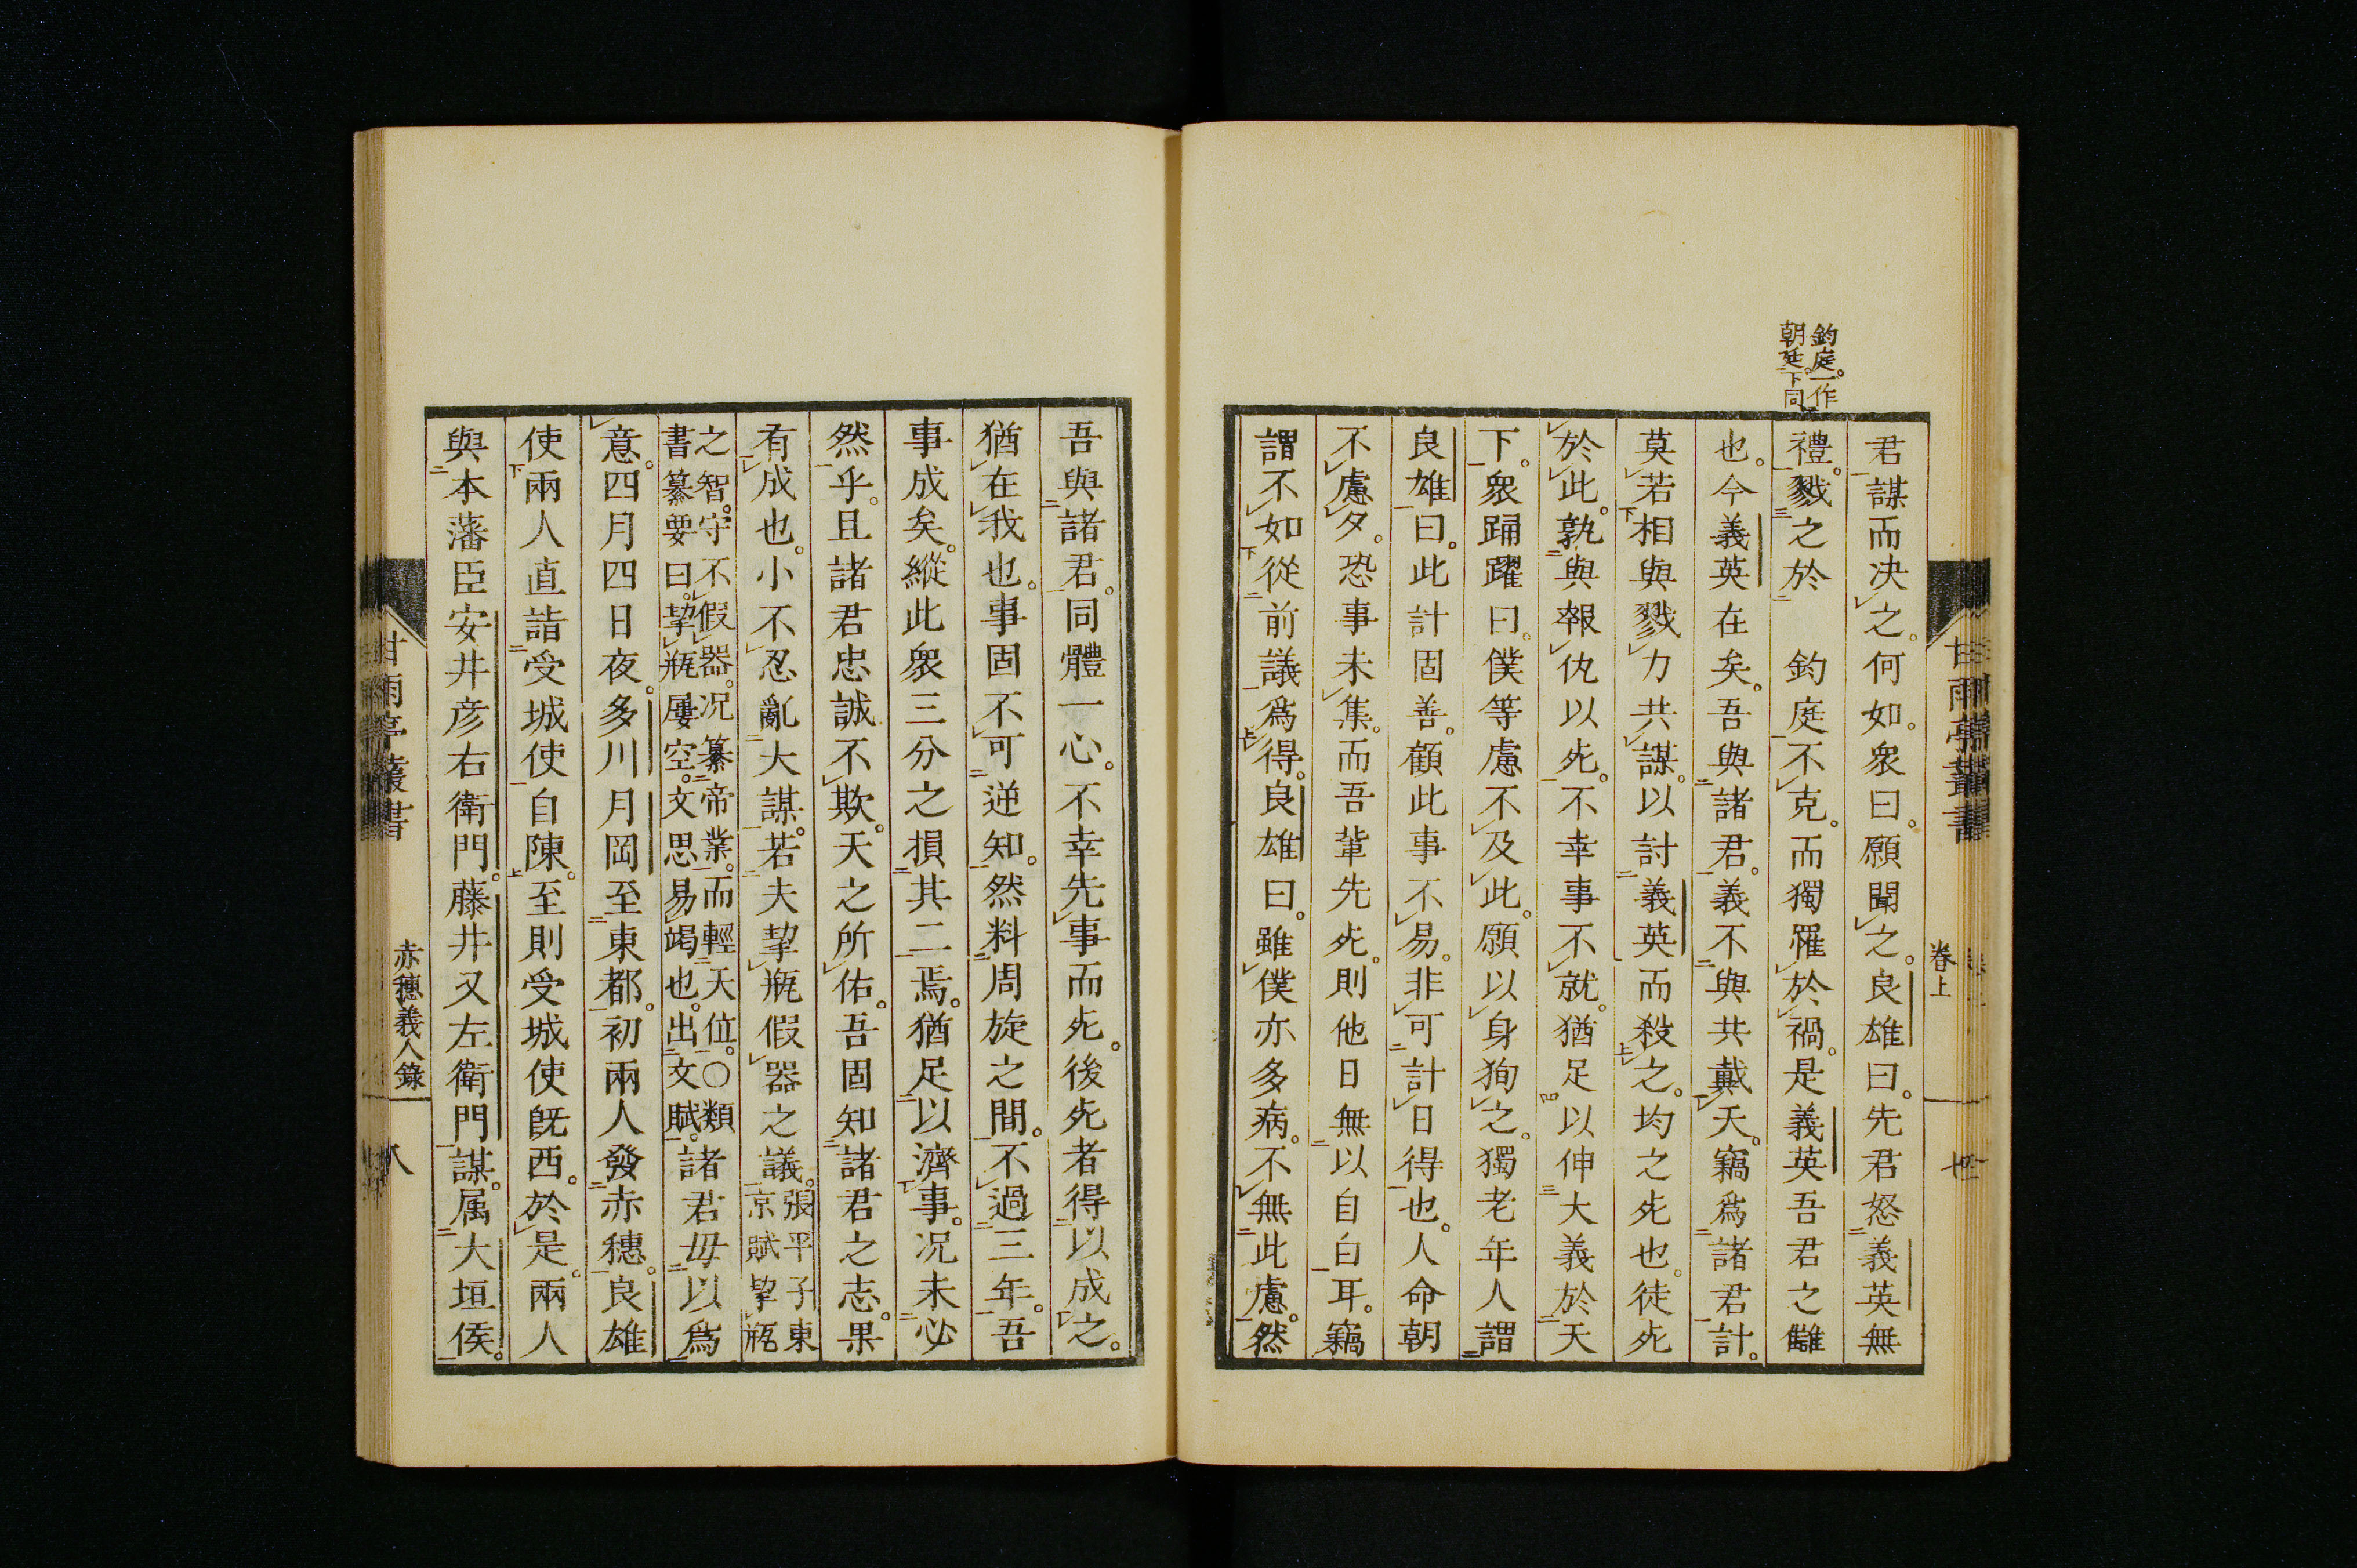 鈞庭。一作
朝廷。下同
君謀而決之。何如。衆曰。願聞之。良雄曰。先君怒義英無
禮。戮之於　鈞庭不克。而獨罹於禍。是義英吾君之讎
也。今義英在矣。吾與諸君。義不與共戴天。竊爲諸君計。
莫若相與戮力共謀。以討義英而殺之。均之死也。徒死
於此。孰與報仇以死。不幸事不就。猶足以伸大義於天
下。衆踊躍曰。僕等慮不及此。願以身狥之。獨老年人謂
良雄曰。此計固善。顧此事不易。非可計日得也。人命朝
不慮夕。恐事未集。而吾輩先死。則他日無以自白耳。竊
謂不如從前議爲得。良雄曰。雖僕亦多病。不無此慮。然
甘雨亭叢書
卷上
吾與諸君。同體一心。不幸先事而死。後死者得以成之。
猶在我也。事固不可逆知。然料周旋之間。不過三年。吾
事成矣。縱此衆三分之損其二焉。猶足以濟事。况未必
然乎。且諸君忠誠不欺。天之所佑。吾固知諸君之志。果
有成也。小不忍亂大謀。若夫挈瓶假器之議。張平子東
京賦挈瓶
之智。守不假器。况纂帝業。而輕天位。○類
書纂要曰。挈瓶屢空。文思易竭也。出文賦。諸君毋以爲
意。四月四日夜。多川月岡至東都。初兩人發赤穗。良雄
使兩人直詣受城使自陳。至則受城使既西。於是。兩人
與本藩臣安井彦右衛門。藤井又左衛門謀。属大垣侯。
甘雨亭叢書
赤穗義人錄
八